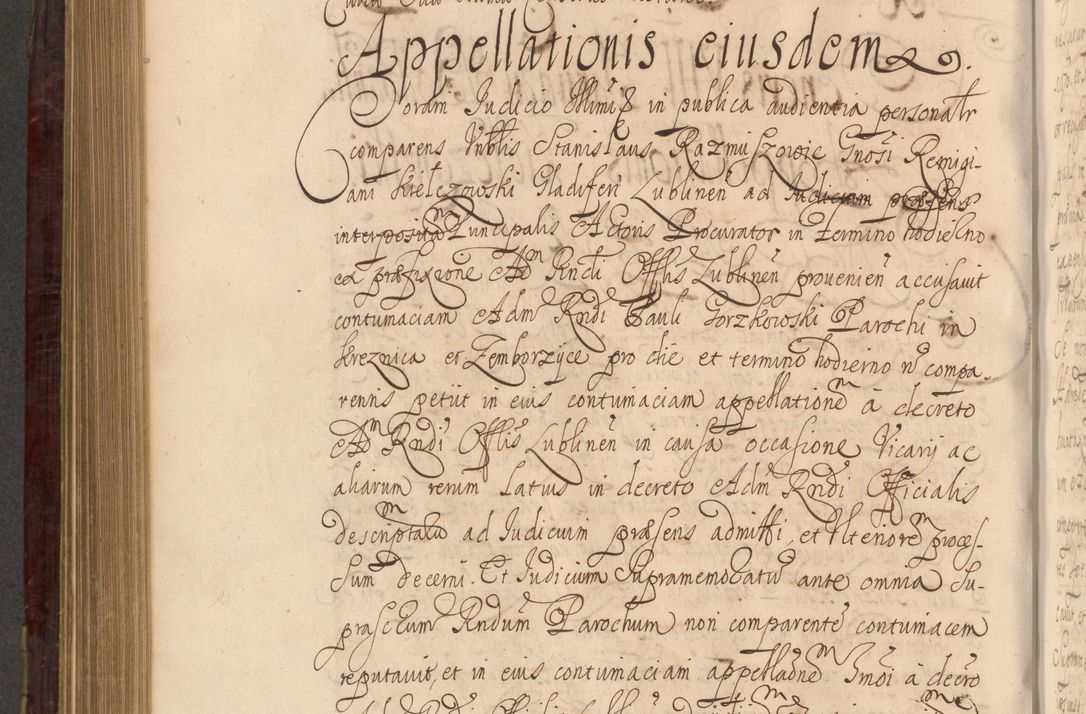 Appellationis eiusdem
Coram Judicio Illmi & in publica audientia personalr
comparens Nblis Stanislaus Razmuszowic Gnosi Remigi-
ani Kiełczowski Gladiferi Lublinen ad Judicium præsens
interposita Principalis Actoris Procurator in Termino hodierno
ex præfixione Adm Rndi Offlis Lublinen provenien accusavit
contumaciam Adm Rndi Pauli Gorzkowski Parochi in
Kreznica et Zemborzyce pro die et termino hodierno n compa-
rentis petiit in eius contumaciam appellatione a decreto
Adm Rndi Offlis Lublinen in causa occasione Vicarij ac
aliarum rerum Latius in decreto Adm Rndi Officialis
descriptalu ad Judicium præsens admitti, et Ulteriore proces-
sum decerni. Et Judicium Supramemoratu ante omnia Su-
prasctum Rndum Parochum non comparente contumacem
reputavit, et in eius contumaciam appellaone Imoi a decro